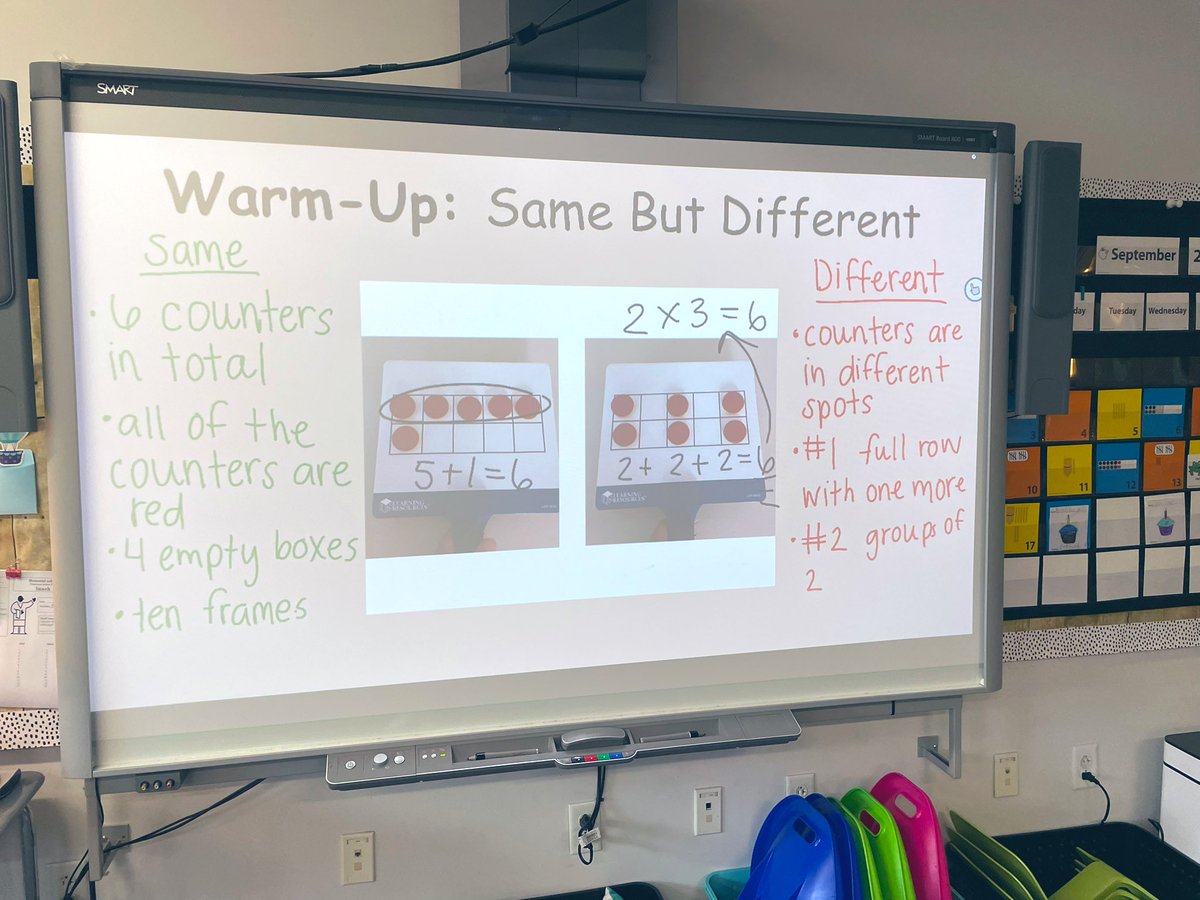 SMART
SMART Board 800
Warm-Up: Same But Different
Same
• 6 counters
in total
• all of the
counters are
red
• 4 empty boxes
• ten frames
2 x 3 = 6
5+1=6
LEARNING
RESOURCES
2+ 2+2=6
LEARNING
RESOURCES
Different
• counters are
in different
spots
• #1 full row
with one more
• #2 groups of
2
September
2
day
Tuesday
Wednesday
3
4
5
6
10
11
12
13
17